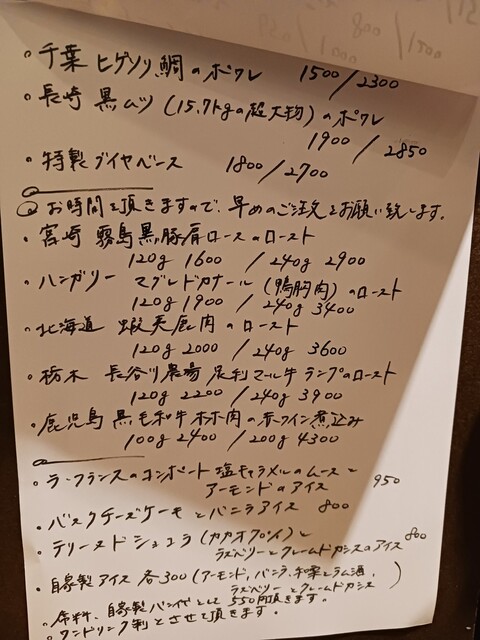 。千葉 ヒゲソリ鯛のポワレ 1500/2300
。長崎 黒ムツ(15.7kgの超大物)のポワレ
1900/2850
。特製ブイヤベース 1800/2700
お時間を頂きますので、早めのご注文をお願い致します。
。宮崎 霧島黒豚肩ロースのロースト
120g 1600/240g 2900
。ハンガリー マグレドカナール(鴨胸肉)のロースト
120g 1900/240g 3400
。北海道 蝦夷鹿肉のロースト
120g 2000/240g 3600
。栃木 長谷川農場 足利マール牛 ランプのロースト
120g 2200/240g 3900
。鹿児島 黒毛和牛ホホ肉の赤ワイン煮込み
100g 2400/200g 4300
。ラ・フランスのコンポート 塩キャラメルのムースと
アーモンドのアイス 950
。バスクチーズケーキとバニラアイス 800
。テリーヌドショコラ(カカオプリン)と
ラズベリーとクレームドカシスのアイス 800
。自家製アイス 各300(アーモンド、バニラ、和栗とラム酒、
ラズベリーとクレームドカシス)
。席料、自家製パン代として550円頂きます。
。ワンドリンク制とさせて頂きます。